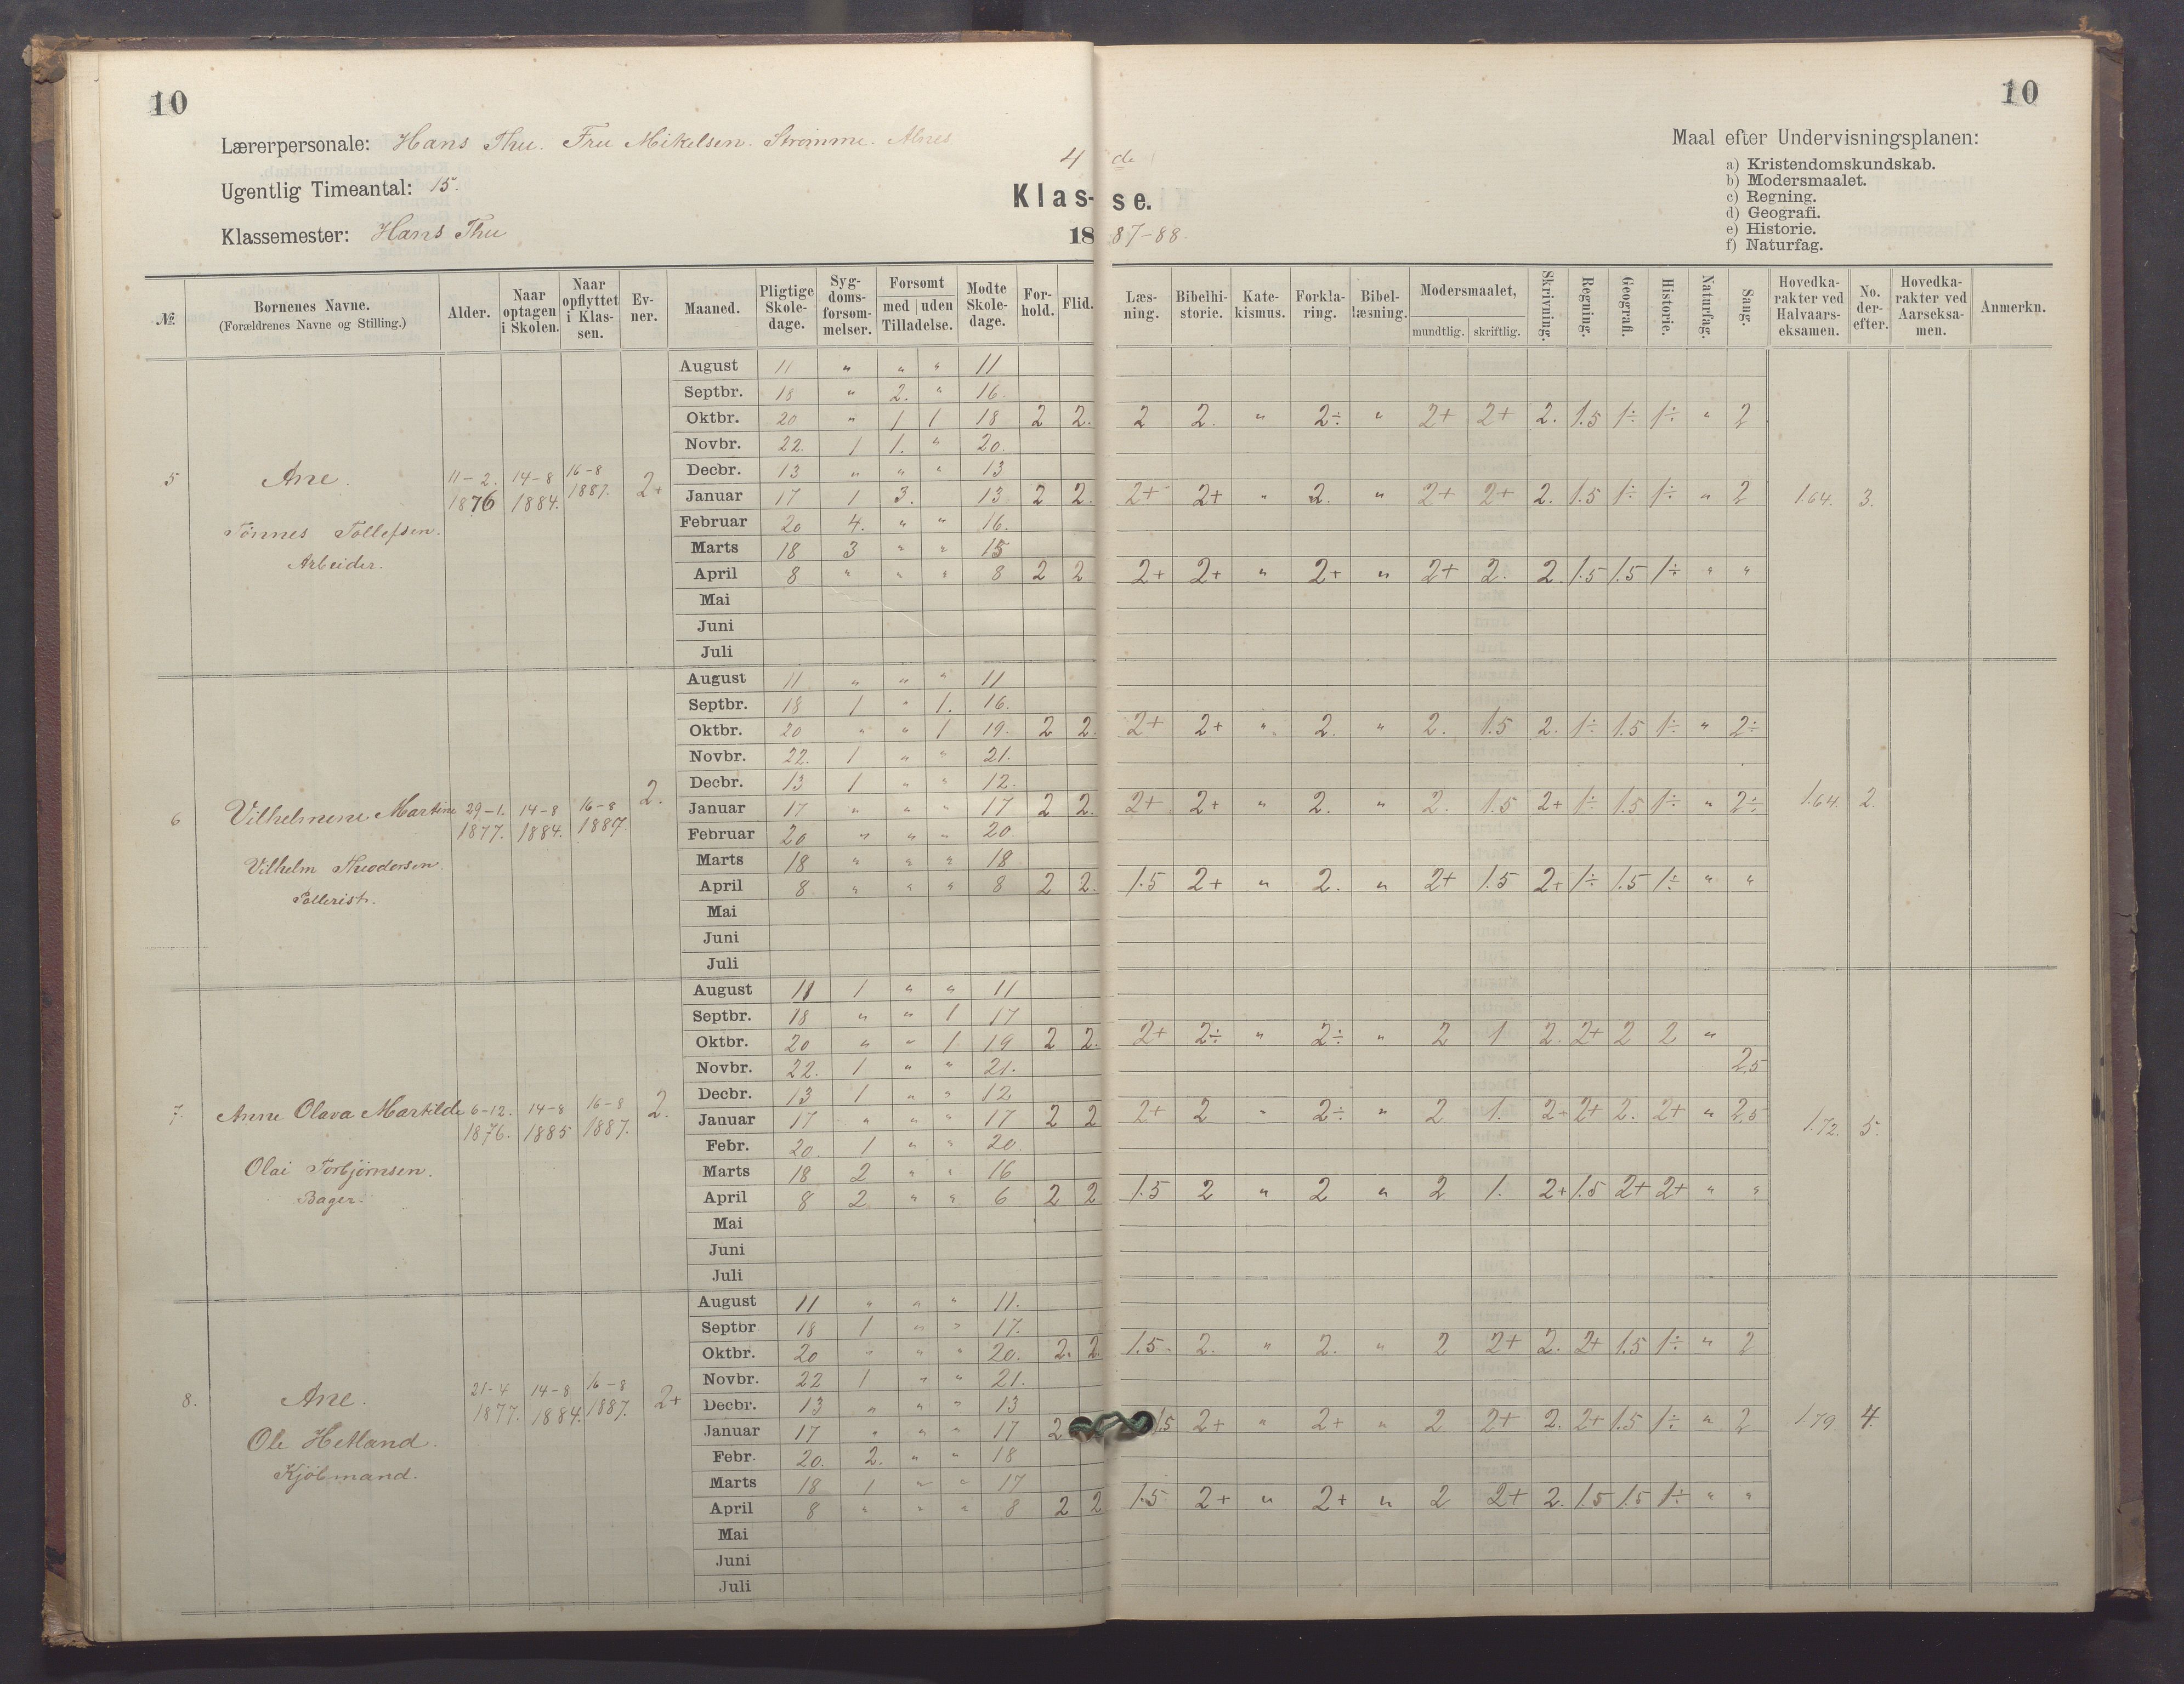 10
10
Lærerpersonale: Hans Thu. Fru Mikelsen. Strømme.
Ugentlig Timeantal: 15.
Klassemester: Hans Thu
4 de
Klas- se.
18 87-88.
Maal efter Undervisningsplanen:
a) Kristendomskundskab.
b) Modersmaalet.
c) Regning.
d) Geografi.
e) Historie.
f) Naturfag.
№ | Bornenes Navne. (Forældrenes Navne og Stilling.) | Alder. | Naar optagen i Skolen. | Naar opflyttet i Klas- sen. | Ev- ner. | Maaned. | Pligtige Skole- dage. | Syg- doms- forsøm- melser. | Forsømt med uden Tilladelse. | Mødte Skole- dage. | For- hold. | Flid. | Læs- ning. | Bibelhi- storie. | Kate- kismus. | Forkla- ring. | Bibel- læsning. | Modersmaalet, mundtlig. skriftlig. | Skrivning. | Regning. | Geografi. | Historie. | Naturfag. | Sang. | Hovedka- rakter ved Halvaars- eksamen. | No. der- efter. | Hovedka- rakter ved Aarseksa- men. | Anmerkn.
5 Ane. 11-2. 1876 14-8 1884. 16-8 1887. 2+
Tønnes Tollefsen.
Arbeider.
August 11 " " " 11
Septbr. 18 " 2. " 16.
Oktbr. 20 " 1 1 18 2 2. 2 2. " 2÷ " 2+ 2+ 2. 1.5 1÷ 1÷ " 2
Novbr. 22. 1 1. " 20.
Decbr. 13 " " " 13
Januar 17 1 3. 13 2 2. 2+ 2+ " 2. " 2+ 2+ 2. 1.5 1÷ 1÷ " 2 1.64. 3.
Februar 20 4. " " 16.
Marts 18 3 " " 15
April 8 " " " 8 2 2 2+ 2+ " 2+ " 2+ 2. 2. 1.5 1.5 1÷ " "
Mai
Juni
Juli
6 Vilhelmene Martine 29-1. 1877. 14-8 1884. 16-8 1887. 2.
Vilhelm Theodorsen.
August 11 " " " 11
Septbr. 18 1 " 1. 16.
Oktbr. 20 " " 1 19. 2 2. 2+ 2+ " 2. " 2. 1.5 2. 1÷ 1.5 1÷ " 2÷
Novbr. 22. 1 " " 21.
Decbr. 13 1 " " 12.
Januar 17 " " " 17 2 2. 2+ 2+ " 2. " 2. 1.5 2+ 1÷ 1.5 1÷ " 2÷ 1.64. 2.
Februar 20 " " " 20.
Marts 18 " " " 18
April 8 " " " 8 2 2. 1.5 2+ " 2. " 2+ 1.5 2+ 1÷ 1.5 1÷ " "
Mai
Juni
Juli
7. Anne Olava Martilde 6-12. 1876. 14-8 1885 16-8 1887. 2.
Olai Torbjørnsen.
Bager.
August 11 1 " " 11
Septbr. 18 " " 1 17
Oktbr. 20 " " 1 19 2 2. 2+ 2÷ " 2÷ " 2 1 2. 2+ 2 2 "
Novbr. 22. 1 " " 21. 2.5
Decbr. 13 1 " " 12
Januar 17 " " " 17 2 2 2+ 2 " 2÷ " 2 1. 2+ 2+ 2. 2+ " 2.5 1.72. 5.
Febr. 20. 1 " " 20.
Marts 18 2 " " 16
April 8 2 " " 6 2 2 1.5 2 " 2 " 2 1. 2+ 1.5 2+ 2+ " "
Mai
Juni
Juli
8. Ane. 21-4 1877. 14-8 1884. 16-8 1887. 2+
Ole Hetland.
Kjøbmand.
August 11 " " " 11.
Septbr 18 1 " " 17.
Oktbr. 20 " " " 20. 2. 2. 1.5. 2. " 2. " 2 2+ 2. 2+ 1.5 1÷ " 2
Novbr. 22 1 " " 21.
Decbr. 13 " " " 13
Januar 17 " " " 17 2 1.5 2+ " 2+ " 2 2+ 2. 2+ 1.5 1÷ " 2 1.79. 4.
Febr. 20. 2. " " 18
Marts 18 1 " " 17
April 8 " " " 8 2 2 1.5. 2+ " 2+ " 2 2+ 2. 1.5 1.5 1÷ " "
Mai
Juni
Juli